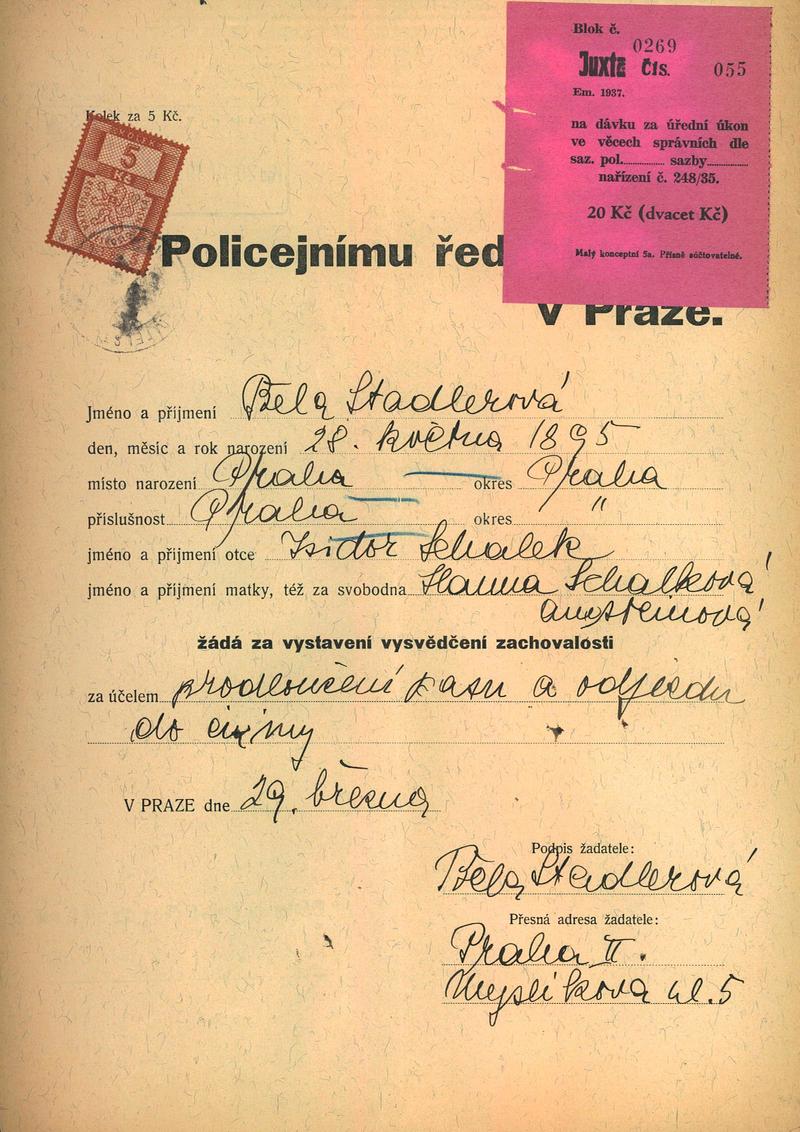 Blok č.
0269
Juxta Čís. 055
Em. 1937.
na dávku za úřední úkon
ve věcech správních dle
saz. pol. sazby
nařízení č. 248/35.
20 Kč (dvacet Kč)
Malý konceptní 5a. Přísně súčtovatelné.
Kolek za 5 Kč.
5
Kč
Policejnímu řed
v Praze.
Jméno a příjmení Bela Stadlerová
den, měsíc a rok narození 28. května 1895
místo narození Praha okres Praha
příslušnost Praha okres "
jméno a příjmení otce Isidor Schalek
jméno a příjmení matky, též za svobodna Hanna Schalková
Angsteinová
žádá za vystavení vysvědčení zachovalosti
za účelem prodloužení pasu a odjezdu
do ciziny
V PRAZE dne 29. března
Podpis žadatele:
Bela Stadlerová
Přesná adresa žadatele:
Praha II.
Myslikova ul. 5